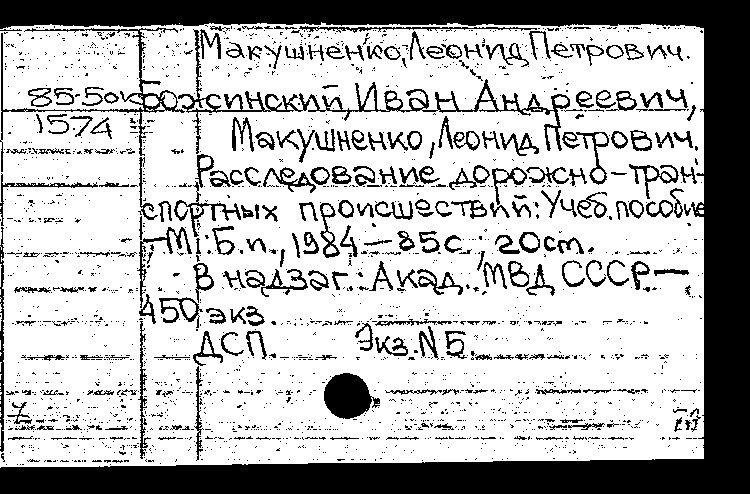 Макушненко, Леонид Петрович.
85-5оk Божинский, Иван Андреевич,
1574
Макушненко, Леонид Петрович.
Расследование дорожно-тран-
спортных происшествий: Учеб. пособие
—М.: Б.и., 1984—85с.; 20см.
В надзаг.: Акад. МВД СССР.—
450 экз.
ДСП. Экз. N 5.